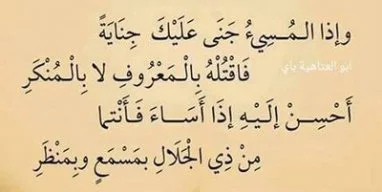 وإذا المُسِيءُ جَنَى عَلَيْكَ جِنَايَةً
فَاقْتُلْهُ بِالْمَعْرُوفِ لا بِالْمُنْكَرِ
ابو العتاهية بأي
أَحْسِنْ إلَيْهِ إذَا أَسَاءَ فَأَنْتما
مِنْ ذِي الْجَلَالِ بمَسْمَعٍ وبِمَنْظَرِ